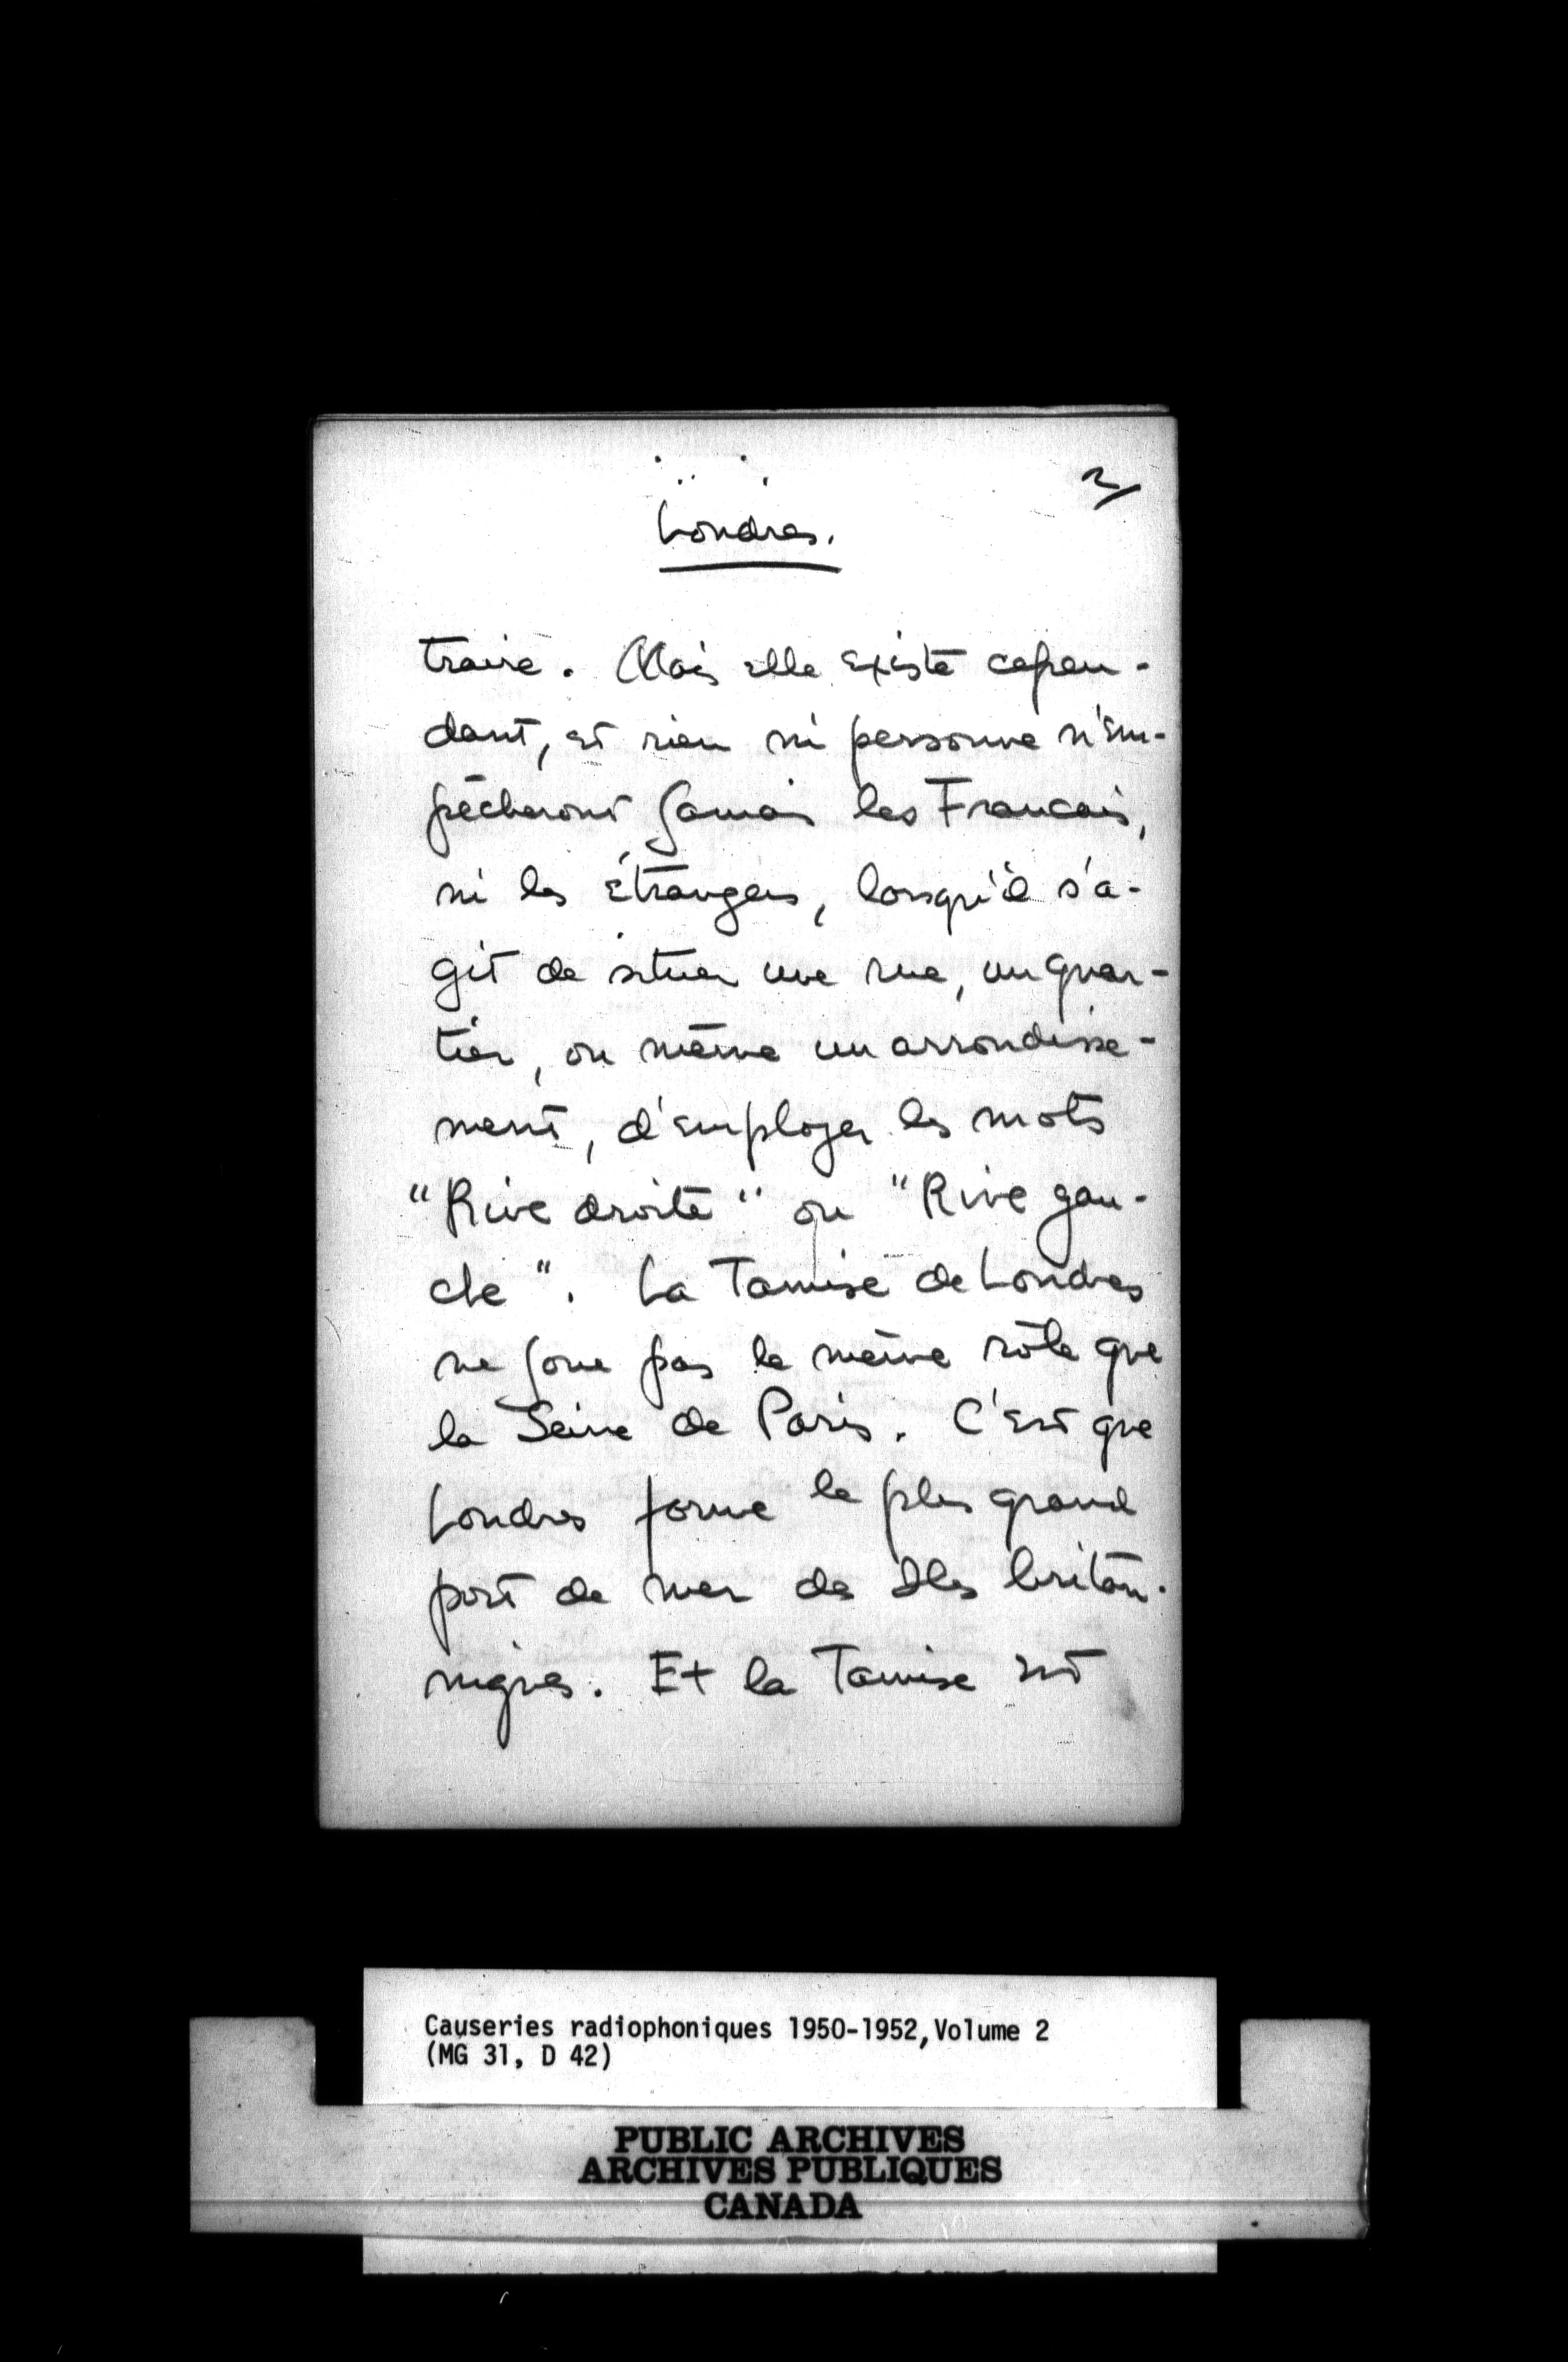 2/
Londres.
traire. Mais elle existe cepen-
dant, et rien ni personne n'em-
pêcheront jamais les Francais,
ni les étrangers, lorsqu'il s'a-
git de situer une rue, un quar-
tier, ou même un arrondisse-
ment, d'employer les mots
"Rive droite" ou "Rive gau-
che". La Tamise de Londres
ne joue pas le même rôle que
la Seine de Paris. C'est que
Londres forme le plus grand
port de mer des Iles britan-
niques. Et la Tamise est
Causeries radiophoniques 1950-1952, Volume 2
(MG 31, D 42)
PUBLIC ARCHIVES
ARCHIVES PUBLIQUES
CANADA